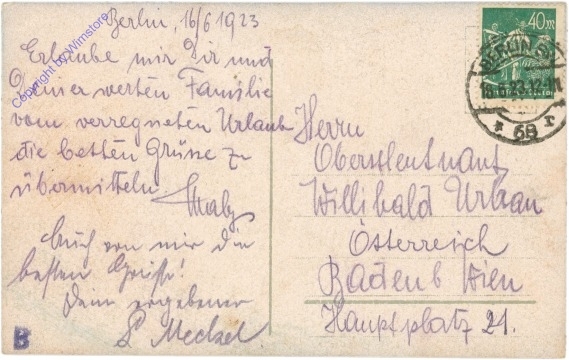 Berlin, 16/6 1923
Erlaube mir Dir und
Deiner werten Familie
vom verregneten Urlaub
die besten Grüsse zu
übermitteln.
Auch von mir die
besten Grüße!
Dein ergebener
Herrn
Oberstleutnant
Willibald Urban
Österreich
Baden b Wien
Hauptplatz 21.
40
BERLIN
* 68 r
B
Copyright by Wimstore